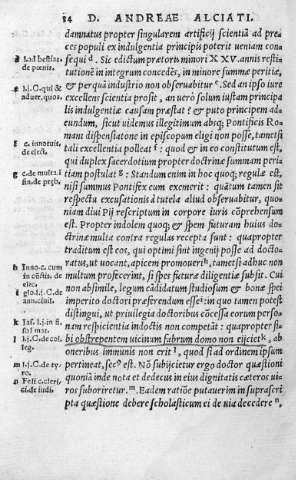 14 D. ANDREAE ALCIATI.
damnatus propter singularem artificij scientiā ad pre
ces populi ex indulgentia principis poterit ueniam conse
qui d. Sic edictum prætoris minori XXV. annis resti
tutionē in integrum concedēs, in minore summæ peritiæ,
& per quā industrio non obseruabitur e. Sed an ipso iure
excellens scientia prosit, an uerò solùm iustam principa
lis indulgentiæ causam præstat? & puto principem ad
eundum, sicut uidemus illegitimum absq; Pontificis Ro
mani dispensatione in episcopum eligi non posse, tametsi
tali excellentia polleat f: quod & in eo constitutum est,
qui duplex sacerdotium propter doctrinæ summam peri
tiam postulat g: Standum enim in hoc quoq; regulæ est,
nisi summus Pontifex eum exemerit: quātum tamen sit
respectu excusationis à tutela aliud obseruabitur, quo
niam diui Pij rescriptum in corpore iuris cōprehensum
est. Propter indolem quoq; & spem futuram huius do
ctrinæ multa contra regulas recepta sunt: quapropter
traditum est eos, qui optimi sint ingenij posse ad docto
ratus, ut uocant, apicem promoueri h, tametsi adhuc non
multum profecerint, si spes futuræ diligentiæ subsit. Cui
non absimile, legum cādidatum studiosum & bonæ spei
imperito doctori præferendum esse i: in quo tamen potest
distingui, ut priuilegia doctoribus cōcessa eorum perso
nam respicientia indoctis non competāt: quapropter si
bi obstrepentem uicinum fabrum domo non eijciet k, ab
oneribus immunis non erit l, quod si ad ordinem ipsum
pertineat, secº est. Nō subijcietur ergo doctor quæstioni
quoniā inde nota et dedecus in eius dignitatis cæteros ui
ros suboriretur. m. Eadem ratiōe putauerim in suprascri
pta quæstione debere scholasticum ei de uia decedere n,